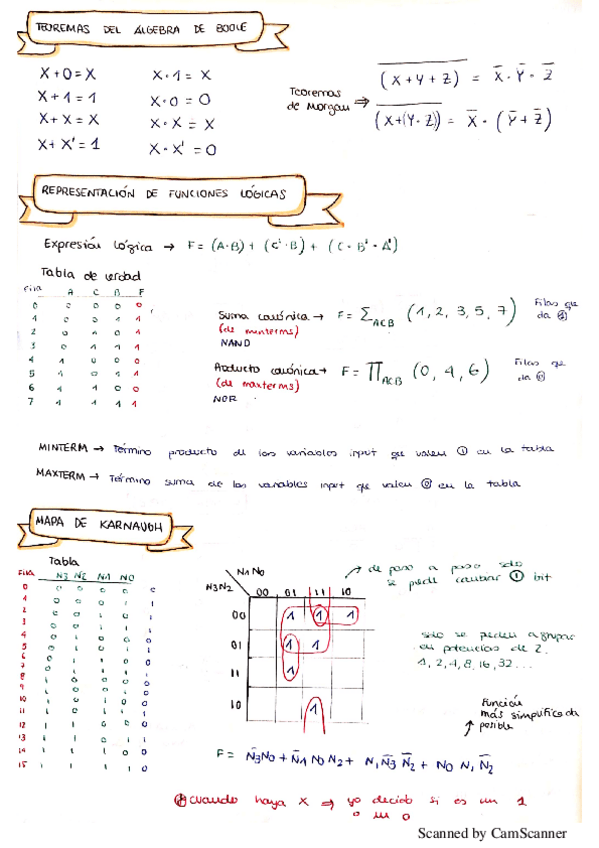 TEOREMAS DEL ÁLGEBRA DE BOOLE
X + 0 = X
X · 1 = X
X + 1 = 1
X · 0 = 0
X + X = X
X · X = X
X + X' = 1
X · X' = 0
Teoremas de Morgan ⇒
(X + Y + Z)̅ = X̅ · Y̅ · Z̅
(X + (Y · Z))̅ = X̅ · (Y̅ + Z̅)
REPRESENTACIÓN DE FUNCIONES LÓGICAS
Expresión lógica → F = (A·B) + (C'·B) + (C·B'·A')
Tabla de verdad
Fila A C B F
0 0 0 0 0
1 0 0 1 1
2 0 1 0 1
3 0 1 1 1
4 1 0 0 0
5 1 0 1 1
6 1 1 0 0
7 1 1 1 1
Suma canónica → F = Σ ACB (1, 2, 3, 5, 7) Filas que da ①
(de minterms)
NAND
Producto canónica → F = ∏ ACB (0, 4, 6) Filas que da ⓪
(de maxterms)
NOR
MINTERM → Término producto de las variables input que valen ① en la tabla
MAXTERM → Término suma de las variables input que valen ⓪ en la tabla
MAPA DE KARNAUGH
Tabla
Fila N3 N2 N1 N0
N1N0
N3N2 00 01 11 10
00 1 1 1
01 1 1
11 1
10 1
↗ de paso a paso solo se puede cambiar ① bit
solo se pueden agrupar en potencias de 2.
1, 2, 4, 8, 16, 32...
Función más simplificada posible
F = N̅3N0 + N̅1 N0 N2 + N1 N̅3 N̅2 + N0 N1 N̅2
cuando haya X ⇒ yo decido si es un 1
o un 0
Scanned by CamScanner